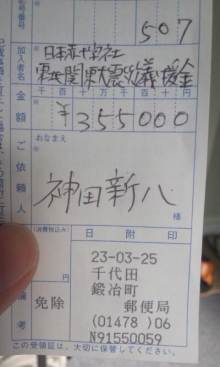 507
加入者名
日本赤十字社
東北関東大震災義援金
金額
千 百 十 万 千 百 十 円
¥355000
ご依頼人
おなまえ
神田新八
様
(消費税込み)
日附印
円
23-03-25
千代田
鍛冶町
郵便局
免除
(01478)06
N91550059
備考
この受領証は、大切に保管してください。